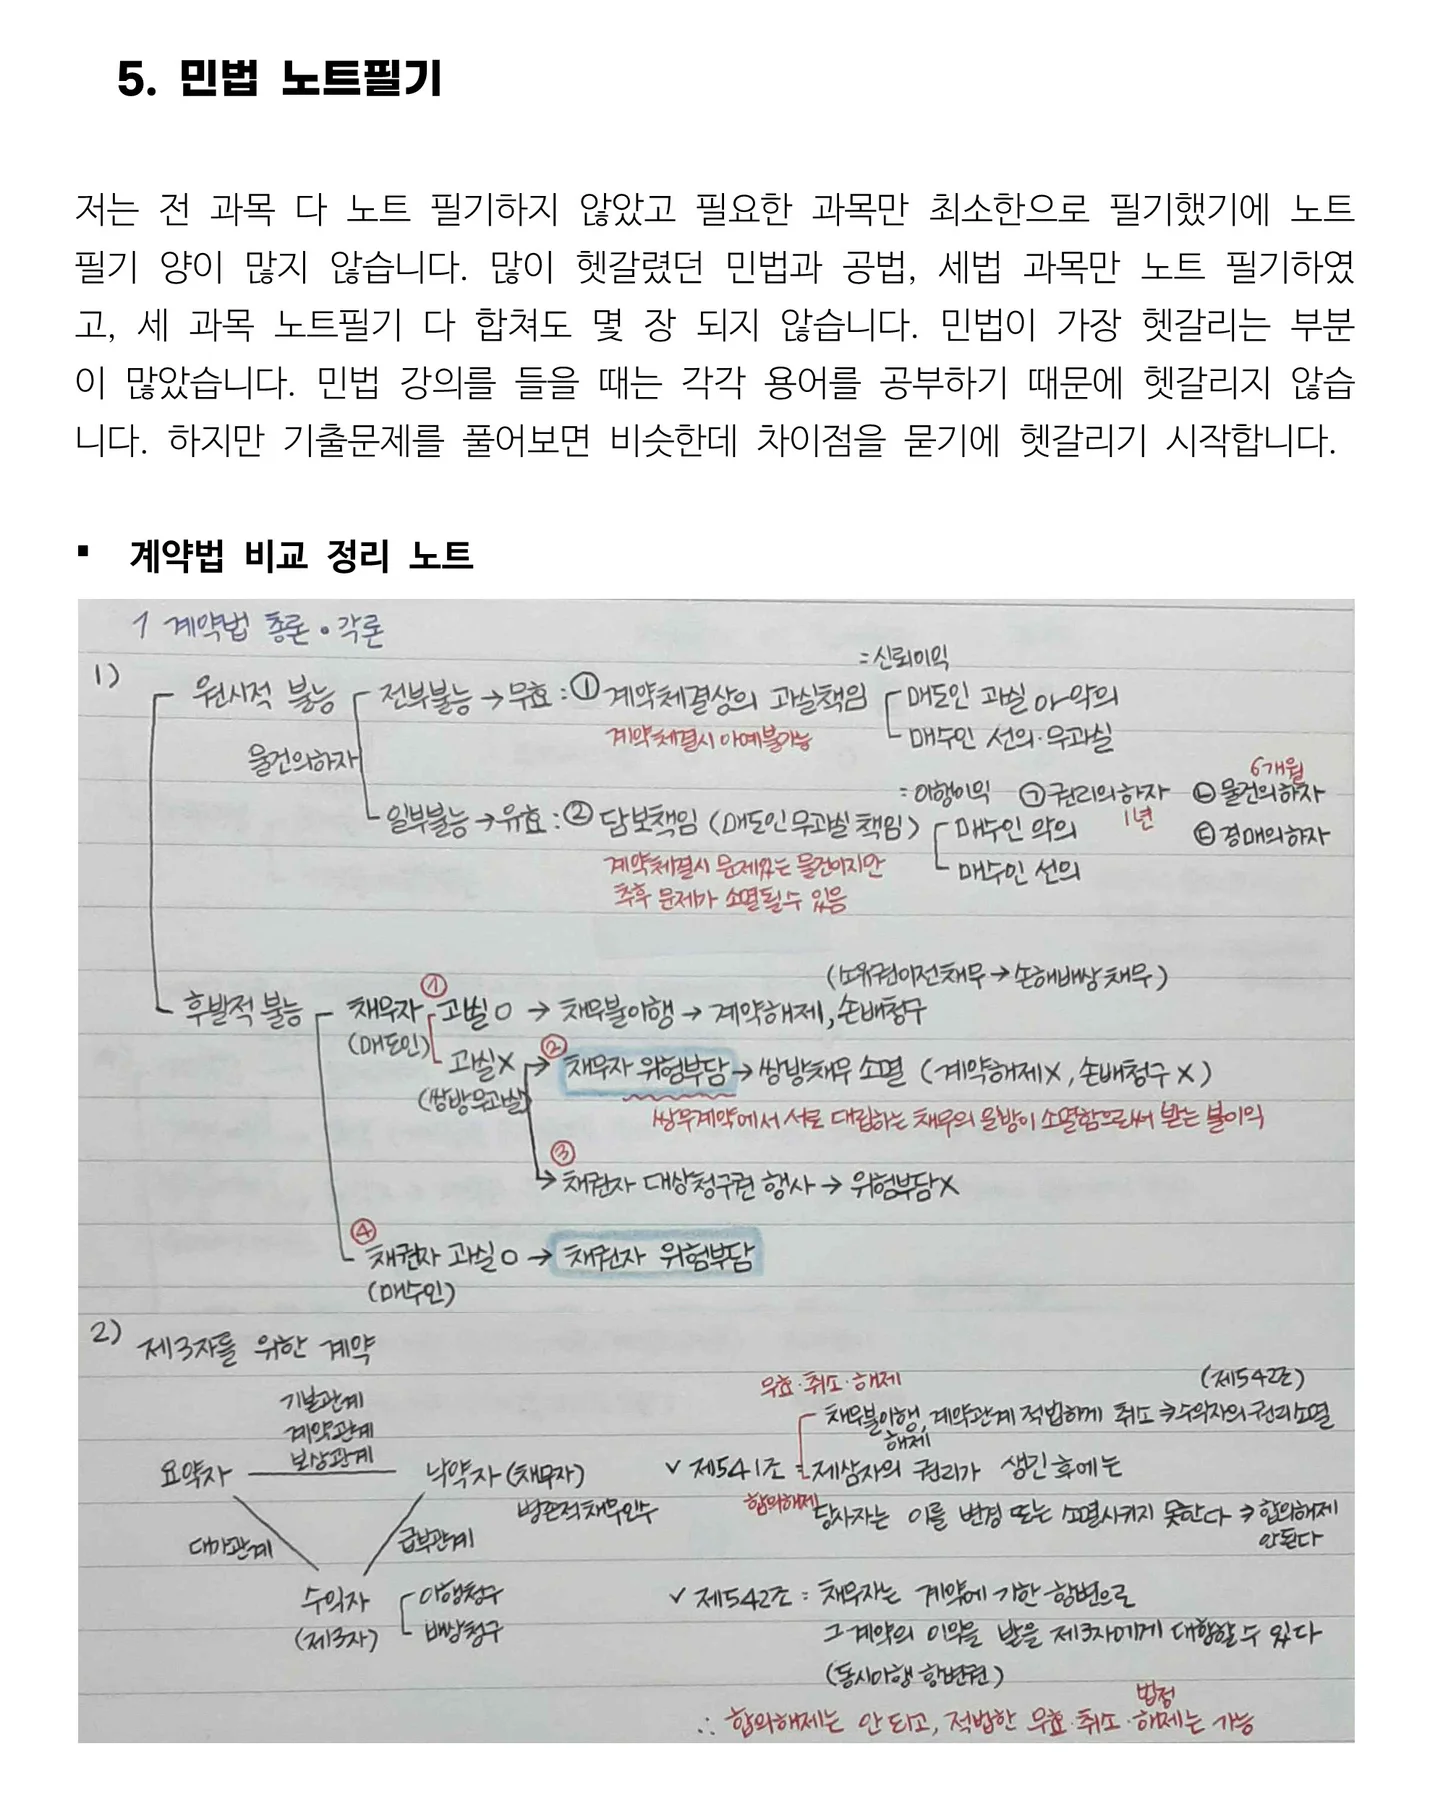 5. 민법 노트필기
저는 전 과목 다 노트 필기하지 않았고 필요한 과목만 최소한으로 필기했기에 노트
필기 양이 많지 않습니다. 많이 헷갈렸던 민법과 공법, 세법 과목만 노트 필기하였
고, 세 과목 노트필기 다 합쳐도 몇 장 되지 않습니다. 민법이 가장 헷갈리는 부분
이 많았습니다. 민법 강의를 들을 때는 각각 용어를 공부하기 때문에 헷갈리지 않습
니다. 하지만 기출문제를 풀어보면 비슷한데 차이점을 묻기에 헷갈리기 시작합니다.
▪ 계약법 비교 정리 노트
1 계약법 총론·각론
1)
=신뢰이익
원시적 불능 전부불능 → 무효 : ① 계약체결상의 과실책임 매도인 과실 or 악의
계약체결시 아예불가능 매수인 선의·무과실
물건의하자
=이행이익 ㉠ 권리의하자 1년 ㉡ 물건의하자 6개월
일부불능 → 유효 : ② 담보책임 (매도인무과실 책임) 매수인 악의 ㉢ 경매의하자
계약체결시 문제있는 물건이지만 매수인 선의
추후 문제가 소멸될수 있음
(소유권이전채무 → 손해배상채무)
후발적 불능 채무자 ① 과실 O → 채무불이행 → 계약해제, 손배청구
(매도인) 과실 X ② 채무자 위험부담 → 쌍방채무 소멸 (계약해제X, 손배청구 X)
(쌍방무과실)
쌍무계약에서 서로 대립하는 채무의 일방이 소멸함으로써 받는 불이익
③ 채권자 대상청구권 행사 → 위험부담X
④ 채권자 과실 O → 채권자 위험부담
(매수인)
2) 제3자를 위한 계약
기본관계
계약관계
보상관계
요약자 낙약자 (채무자)
병존적채무인수
대가관계 급부관계
수익자 이행청구
(제3자) 배상청구
무효·취소·해제 (제542조)
채무불이행, 계약관계 적법하게 취소 수익자의 권리소멸
해제
✓ 제541조 : 제삼자의 권리가 생긴 후에는
합의해제 당사자는 이를 변경 또는 소멸시키지 못한다 합의해제
안된다
✓ 제542조 : 채무자는 계약에 기한 항변으로
그 계약의 이익을 받을 제3자에게 대항할수 있다
(동시이행 항변권)
법정
∴ 합의해제는 안되고, 적법한 무효·취소·해제는 가능